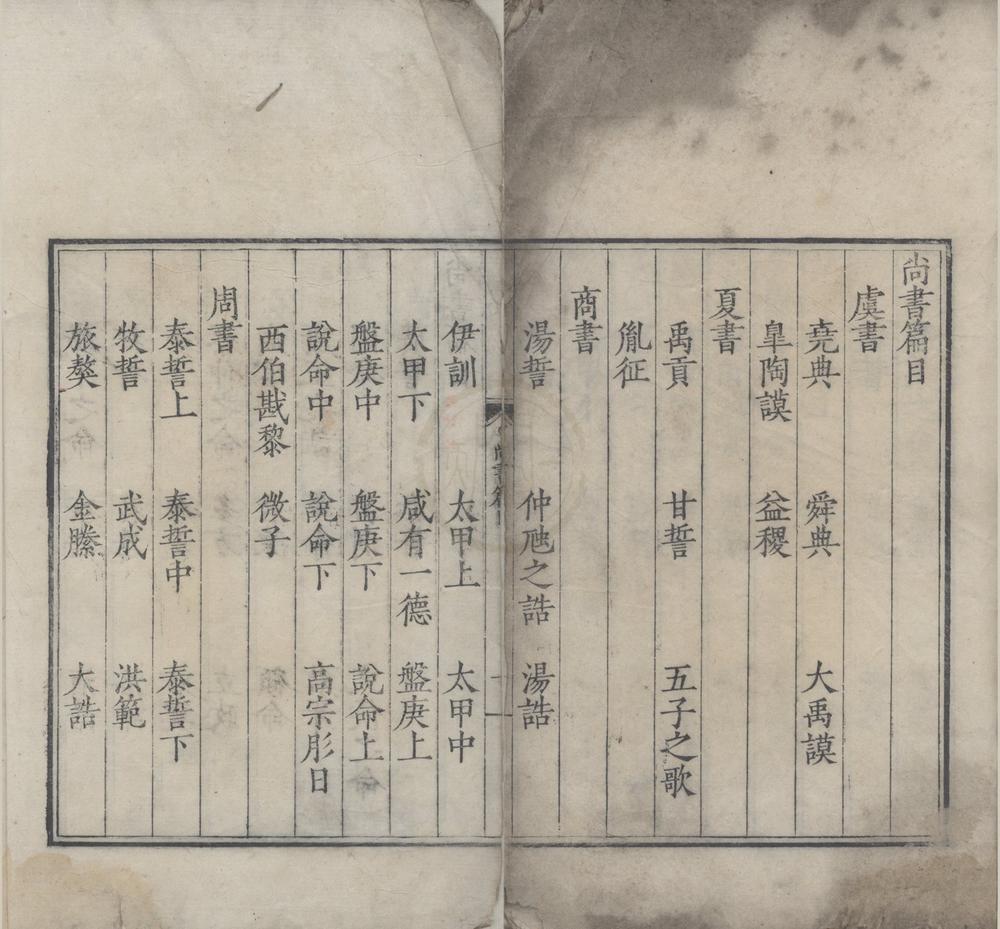 尚書篇目
虞書
堯典 舜典 大禹謨
臯陶謨 益稷
夏書
禹貢 甘誓 五子之歌
胤征
商書
湯誓 仲虺之誥 湯誥
尚書篇目
一
伊訓 太甲上 太甲中
太甲下 咸有一德 盤庚上
盤庚中 盤庚下 說命上
說命中 說命下 高宗肜日
西伯戡黎 微子
周書
泰誓上 泰誓中 泰誓下
牧誓 武成 洪範
旅獒 金縢 大誥